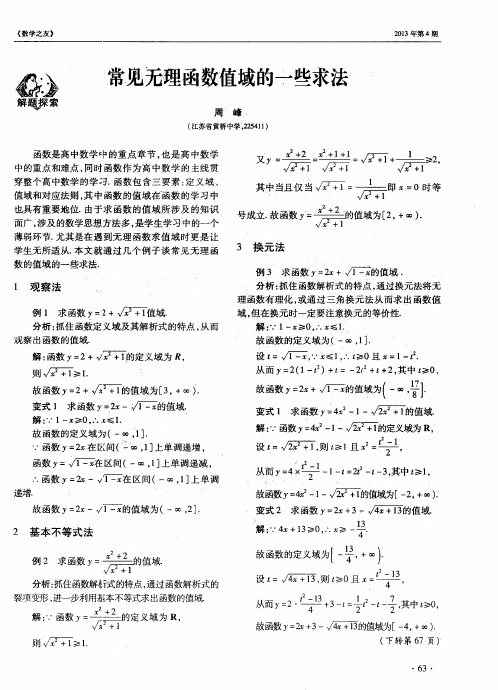 《数学之友》
2013年第4期
解题探索
常见无理函数值域的一些求法
周 峰
(江苏省黄桥中学,225411)
函数是高中数学中的重点章节,也是高中数学
中的重点和难点,同时函数作为高中数学的主线贯
穿整个高中数学的学习. 函数包含三要素:定义域、
值域和对应法则,其中函数的值域在函数的学习中
也具有重要地位. 由于求函数的值域所涉及的知识
面广,涉及的数学思想方法多,是学生学习中的一个
薄弱环节. 尤其是在遇到无理函数求值域时更是让
学生无所适从. 本文就通过几个例子谈常见无理函
数的值域的一些求法.
1 观察法
例1 求函数 y=2+√(x²+1)的值域.
分析:抓住函数定义域及其解析式的特点,从而
观察出函数的值域.
解:函数 y=2+√(x²+1)的定义域为 R,
则√(x²+1)≥1.
故函数 y=2+√(x²+1)的值域为[3,+∞).
变式1 求函数 y=2x-√(1-x)的值域.
解:∵1-x≥0,∴x≤1.
故函数的定义域为(-∞,1].
∵函数 y=2x 在区间(-∞,1]上单调递增,
函数 y=√(1-x)在区间(-∞,1]上单调递减,
∴函数 y=2x-√(1-x)在区间(-∞,1]上单调
递增.
故函数 y=2x-√(1-x)的值域为(-∞,2].
2 基本不等式法
例2 求函数 y=(x²+2)/√(x²+1)的值域.
分析:抓住函数解析式的特点,通过函数解析式的
裂项变形,进一步利用基本不等式求出函数的值域.
解:∵函数 y=(x²+2)/√(x²+1)的定义域为 R,
则√(x²+1)≥1.
又 y=(x²+2)/√(x²+1)=(x²+1+1)/√(x²+1)=√(x²+1)+1/√(x²+1)≥2,
其中当且仅当√(x²+1)=1/√(x²+1)即 x=0 时等
号成立. 故函数 y=(x²+2)/√(x²+1)的值域为[2,+∞).
3 换元法
例3 求函数 y=2x+√(1-x)的值域.
分析:抓住函数解析式的特点,通过换元法将无
理函数有理化,或通过三角换元法从而求出函数值
域,但在换元时一定要注意换元的等价性.
解:∵1-x≥0,∴x≤1.
故函数的定义域为(-∞,1].
设 t=√(1-x),∵x≤1,∴t≥0 且 x=1-t².
从而 y=2(1-t²)+t=-2t²+t+2,其中 t≥0,
故函数 y=2x+√(1-x)的值域为(-∞,17/8].
变式1 求函数 y=4x²-1-√(2x²+1)的值域.
解:∵函数 y=4x²-1-√(2x²+1)的定义域为 R,
设 t=√(2x²+1),则 t≥1 且 x²=(t²-1)/2,
从而 y=4×(t²-1)/2-1-t=2t²-t-3,其中 t≥1,
故函数 y=4x²-1-√(2x²+1)的值域为[-2,+∞).
变式2 求函数 y=2x+3-√(4x+13)的值域.
解:∵4x+13≥0,∴x≥-13/4.
故函数的定义域为[-13/4,+∞).
设 t=√(4x+13),则 t≥0 且 x=(t²-13)/4,
从而 y=2·(t²-13)/4+3-t=1/2t²-t-7/2,其中 t≥0,
故函数 y=2x+3-√(4x+13)的值域为[-4,+∞).
(下转第67页)
·63·